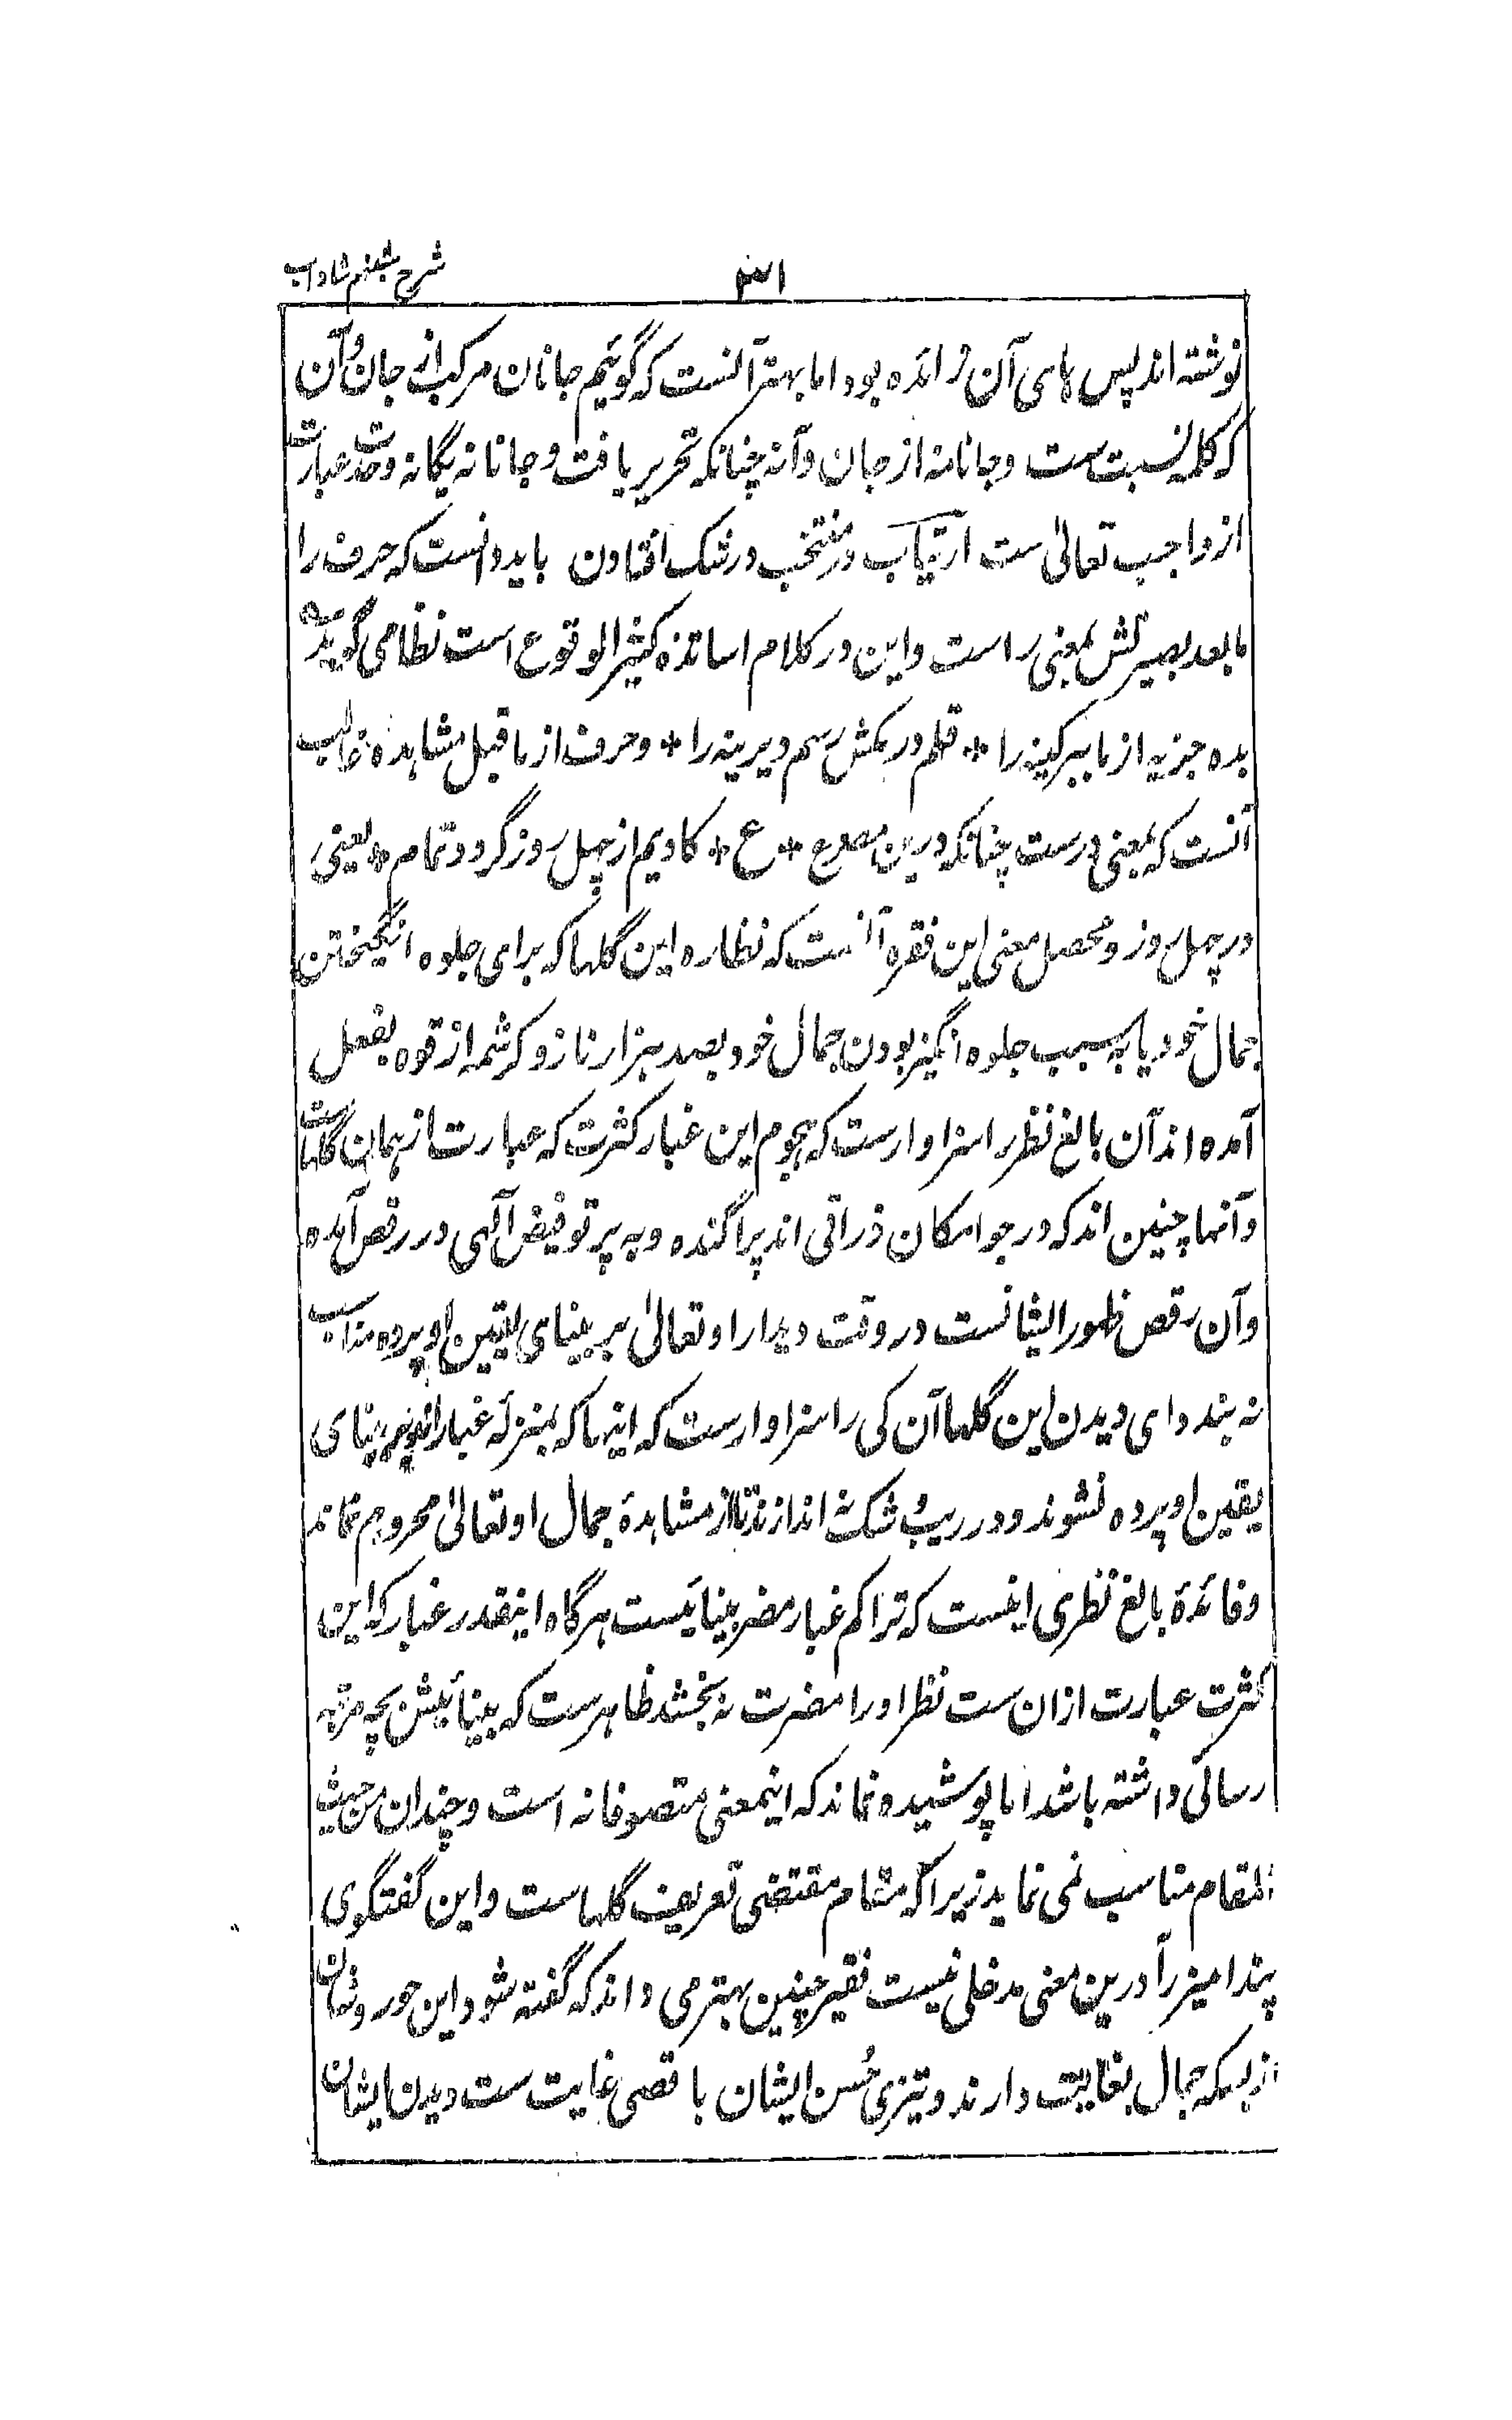 شرح شبنم شاداب
۳۱
نوشته اند پس های آن زائده بود اما بهتر آنست که گوئیم جانان مرکب از جان و آن
که کلمه نسبت ست و جانانه از جان و آنه چنانکه تحریر یافت و جانانه یگانه وحدت عبارت
از واجب تعالیٰ ست ارتیاب در منتخب در شک افتادن باید دانست که حرف را
ما بعد بصیرتش بمعنی راست و این در کلام اساتذه کثیر الوقوع است نظامی گوید
بده جزیه از ما ببر کینه را * قلم در بکش رسم دیرینه را * و حرف از ما قبل مشاهده غالب
آنست که بمعنی در ست چنانکه درین مصرع * ع * کادیم از چهل روز گردد تمام * یعنی
در چهل روز و محصل معنی این فقره آنست که نظاره این گلها که برای جلوه انگیختن
جمال خود یا به سبب جلوه انگیز بودن جمال خود بصد هزار ناز و کرشمه از قوه بفعل
آمده اند آن بالغ نظر را سزاوار ست که هجوم این غبار کثرت که عبارت از همان گلهاست
و آنها چنین اند که در جو امکان ذراتی اند پراگنده و به پرتو فیض آلهی در رقص آمده
و آن رقص ظهور ایشانست در وقت دیدار او تعالیٰ بر بینای یقین او پرده
نه بندد ای دیدن این گلها آن کی را سزاوار ست که اینها که بمنزلهٔ غبار اند بر بینای
یقین او پرده نشوند و در ریب و شک نه اندازند تا از مشاهدهٔ جمال او تعالیٰ محروم نماند
و فائدهٔ بالغ نظری اینست که تراکم غبار مضر بینائیست هرگاه اینقدر غبار که این
کثرت عبارت ازان ست نظر او را مضرت نه بخشد ظاهر ست که بینائیش بچه مرتبه
رسائی داشته باشد اما پوشیده نماند که اینمعنی متصوفانه است و چندان من حیث
المقام مناسب نمی نماید زیرا که مقام مقتضی تعریف گلهاست و این گفتگوی
پند آمیز را درین معنی مدخلی نیست فقیر چنین بهتر می داند که گفته شود این حور وشان
از بسکه جمال بغایت دارند و تیزی حُسن ایشان با قصی غایت ست دیدن ایشان